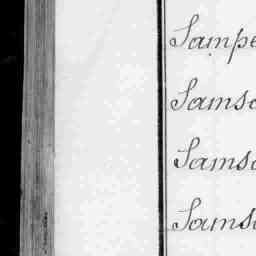 Sampe
Samso
Samso
Samso